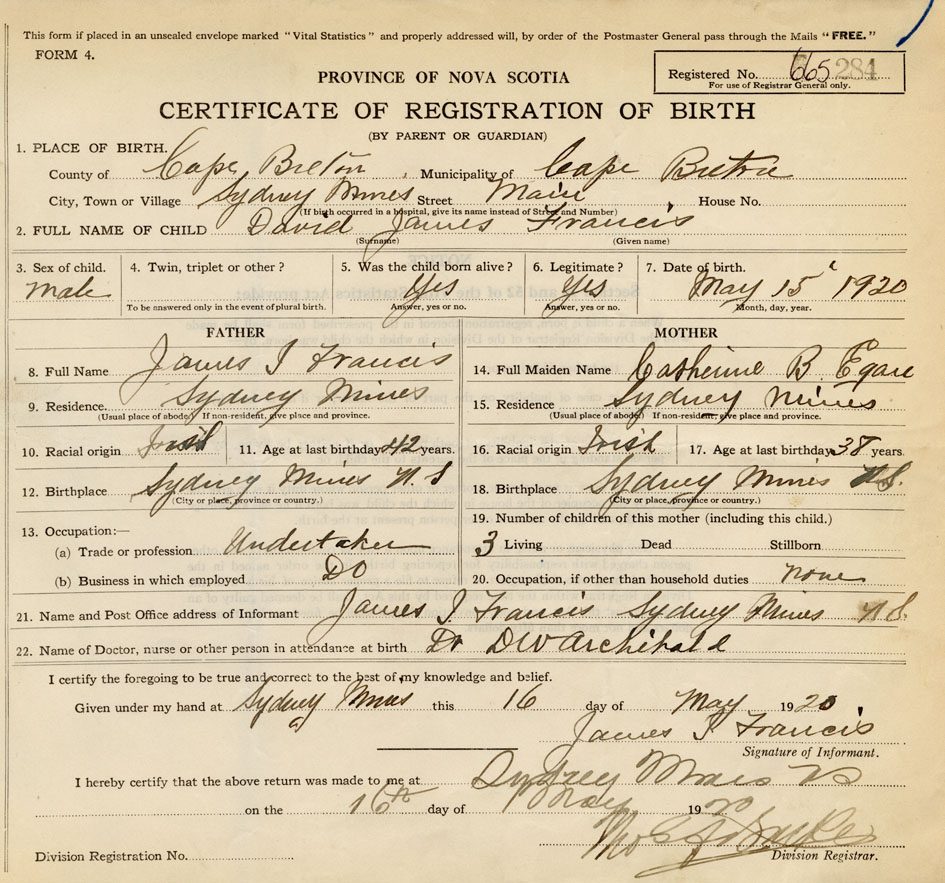 This form if placed in an unsealed envelope marked "Vital Statistics" and properly addressed will, by order of the Postmaster General pass through the Mails "FREE."
FORM 4.
PROVINCE OF NOVA SCOTIA
Registered No. 665 284
For use of Registrar General only.
CERTIFICATE OF REGISTRATION OF BIRTH
(BY PARENT OR GUARDIAN)
1. PLACE OF BIRTH.
County of Cape Breton, Municipality of Cape Breton
City, Town or Village Sydney Mines Street Main House No.
(If birth occurred in a hospital, give its name instead of Street and Number)
2. FULL NAME OF CHILD David James Francis
(Surname) (Given name)
3. Sex of child. 4. Twin, triplet or other? 5. Was the child born alive? 6. Legitimate? 7. Date of birth.
male Yes Yes May 15 1920
To be answered only in the event of plural birth. Answer, yes or no. Answer, yes or no. Month, day, year.
FATHER MOTHER
8. Full Name James J Francis 14. Full Maiden Name Catherine B Egan
9. Residence. Sydney Mines 15. Residence Sydney Mines
(Usual place of abode) If non-resident, give place and province. (Usual place of abode) If non-resident, give place and province.
10. Racial origin Irish 11. Age at last birthday 42 years. 16. Racial origin Irish 17. Age at last birthday 38 years.
12. Birthplace Sydney Mines N.S 18. Birthplace Sydney Mines N.S.
(City or place, province or country.) (City or place, province or country.)
13. Occupation:— 19. Number of children of this mother (including this child.)
(a) Trade or profession Undertaker 3 Living Dead Stillborn
(b) Business in which employed DO 20. Occupation, if other than household duties none
21. Name and Post Office address of Informant James J. Francis Sydney Mines N.S.
22. Name of Doctor, nurse or other person in attendance at birth Dr DW Archibald
I certify the foregoing to be true and correct to the best of my knowledge and belief.
Given under my hand at Sydney Mines this 16 day of May 1920
James J Francis
Signature of Informant.
I hereby certify that the above return was made to me at Sydney Mines NS
on the 16th day of May 1920
Division Registration No. Division Registrar.